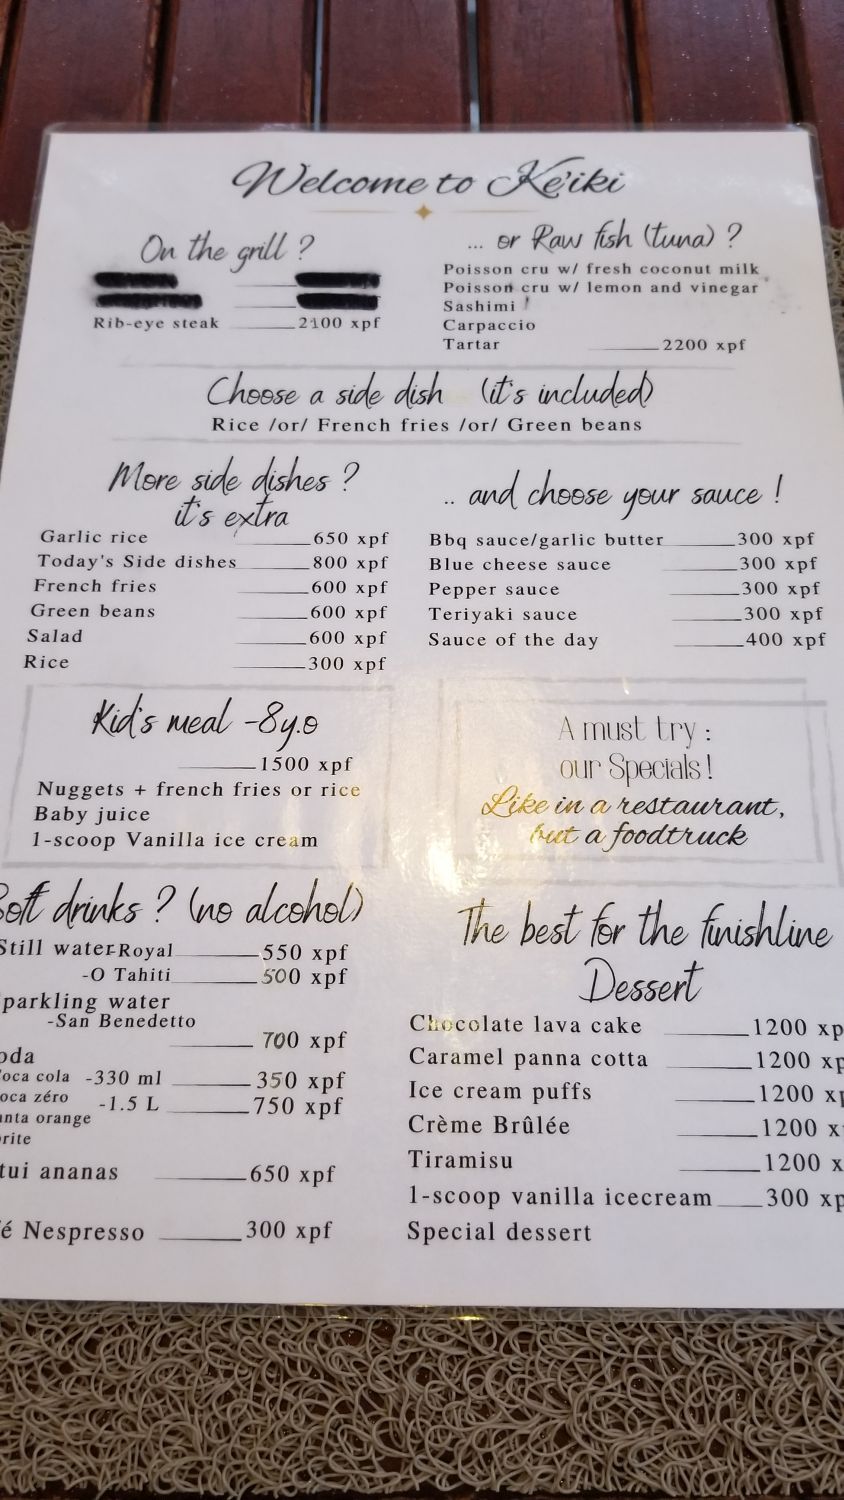 Welcome to Ke'iki
On the grill ?
Rib-eye steak 2100 xpf
... or Raw fish (tuna) ?
Poisson cru w/ fresh coconut milk
Poisson cru w/ lemon and vinegar
Sashimi
Carpaccio
Tartar 2200 xpf
Choose a side dish (it's included)
Rice /or/ French fries /or/ Green beans
More side dishes ?
it's extra
Garlic rice 650 xpf
Today's Side dishes 800 xpf
French fries 600 xpf
Green beans 600 xpf
Salad 600 xpf
Rice 300 xpf
.. and choose your sauce !
Bbq sauce/garlic butter 300 xpf
Blue cheese sauce 300 xpf
Pepper sauce 300 xpf
Teriyaki sauce 300 xpf
Sauce of the day 400 xpf
Kid's meal -8y.o
1500 xpf
Nuggets + french fries or rice
Baby juice
1-scoop Vanilla ice cream
A must try :
our Specials !
Like in a restaurant,
but a foodtruck
Soft drinks ? (no alcohol)
Still water-Royal 550 xpf
-O Tahiti 500 xpf
parkling water
-San Benedetto
700 xpf
oda
oca cola -330 ml 350 xpf
oca zéro -1.5 L 750 xpf
anta orange
rite
tui ananas 650 xpf
é Nespresso 300 xpf
The best for the finishline
Dessert
Chocolate lava cake 1200 xp
Caramel panna cotta 1200 xp
Ice cream puffs 1200 xp
Crème Brûlée 1200 x
Tiramisu 1200 x
1-scoop vanilla icecream 300 xp
Special dessert